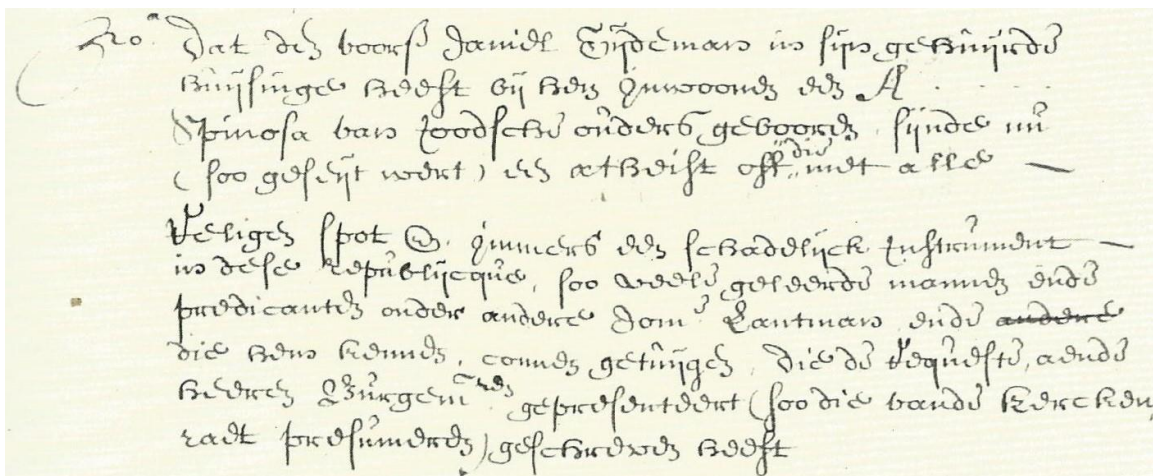 Dat den voors Daniel Tijdeman in sijn gehuijrde
huijsinge heeft bij hem Inwoonen een A . . . . .
Spinosa van Joodsche ouders gebooren sijnde nu
(soo geseijt wert) een atheist off die met alle —
Religien spot En Immers een schadelijck Instrument —
in dese republijcque, soo veele geleerde mannen ende
predicanten onder andere Dom.s Lantman ende andere
die hem kennen, connen getuijgen, die de Requeste, aende
heeren Burgem.ren gepresenteert (soo die vande kercken
radt presumeren) geschreven heeft